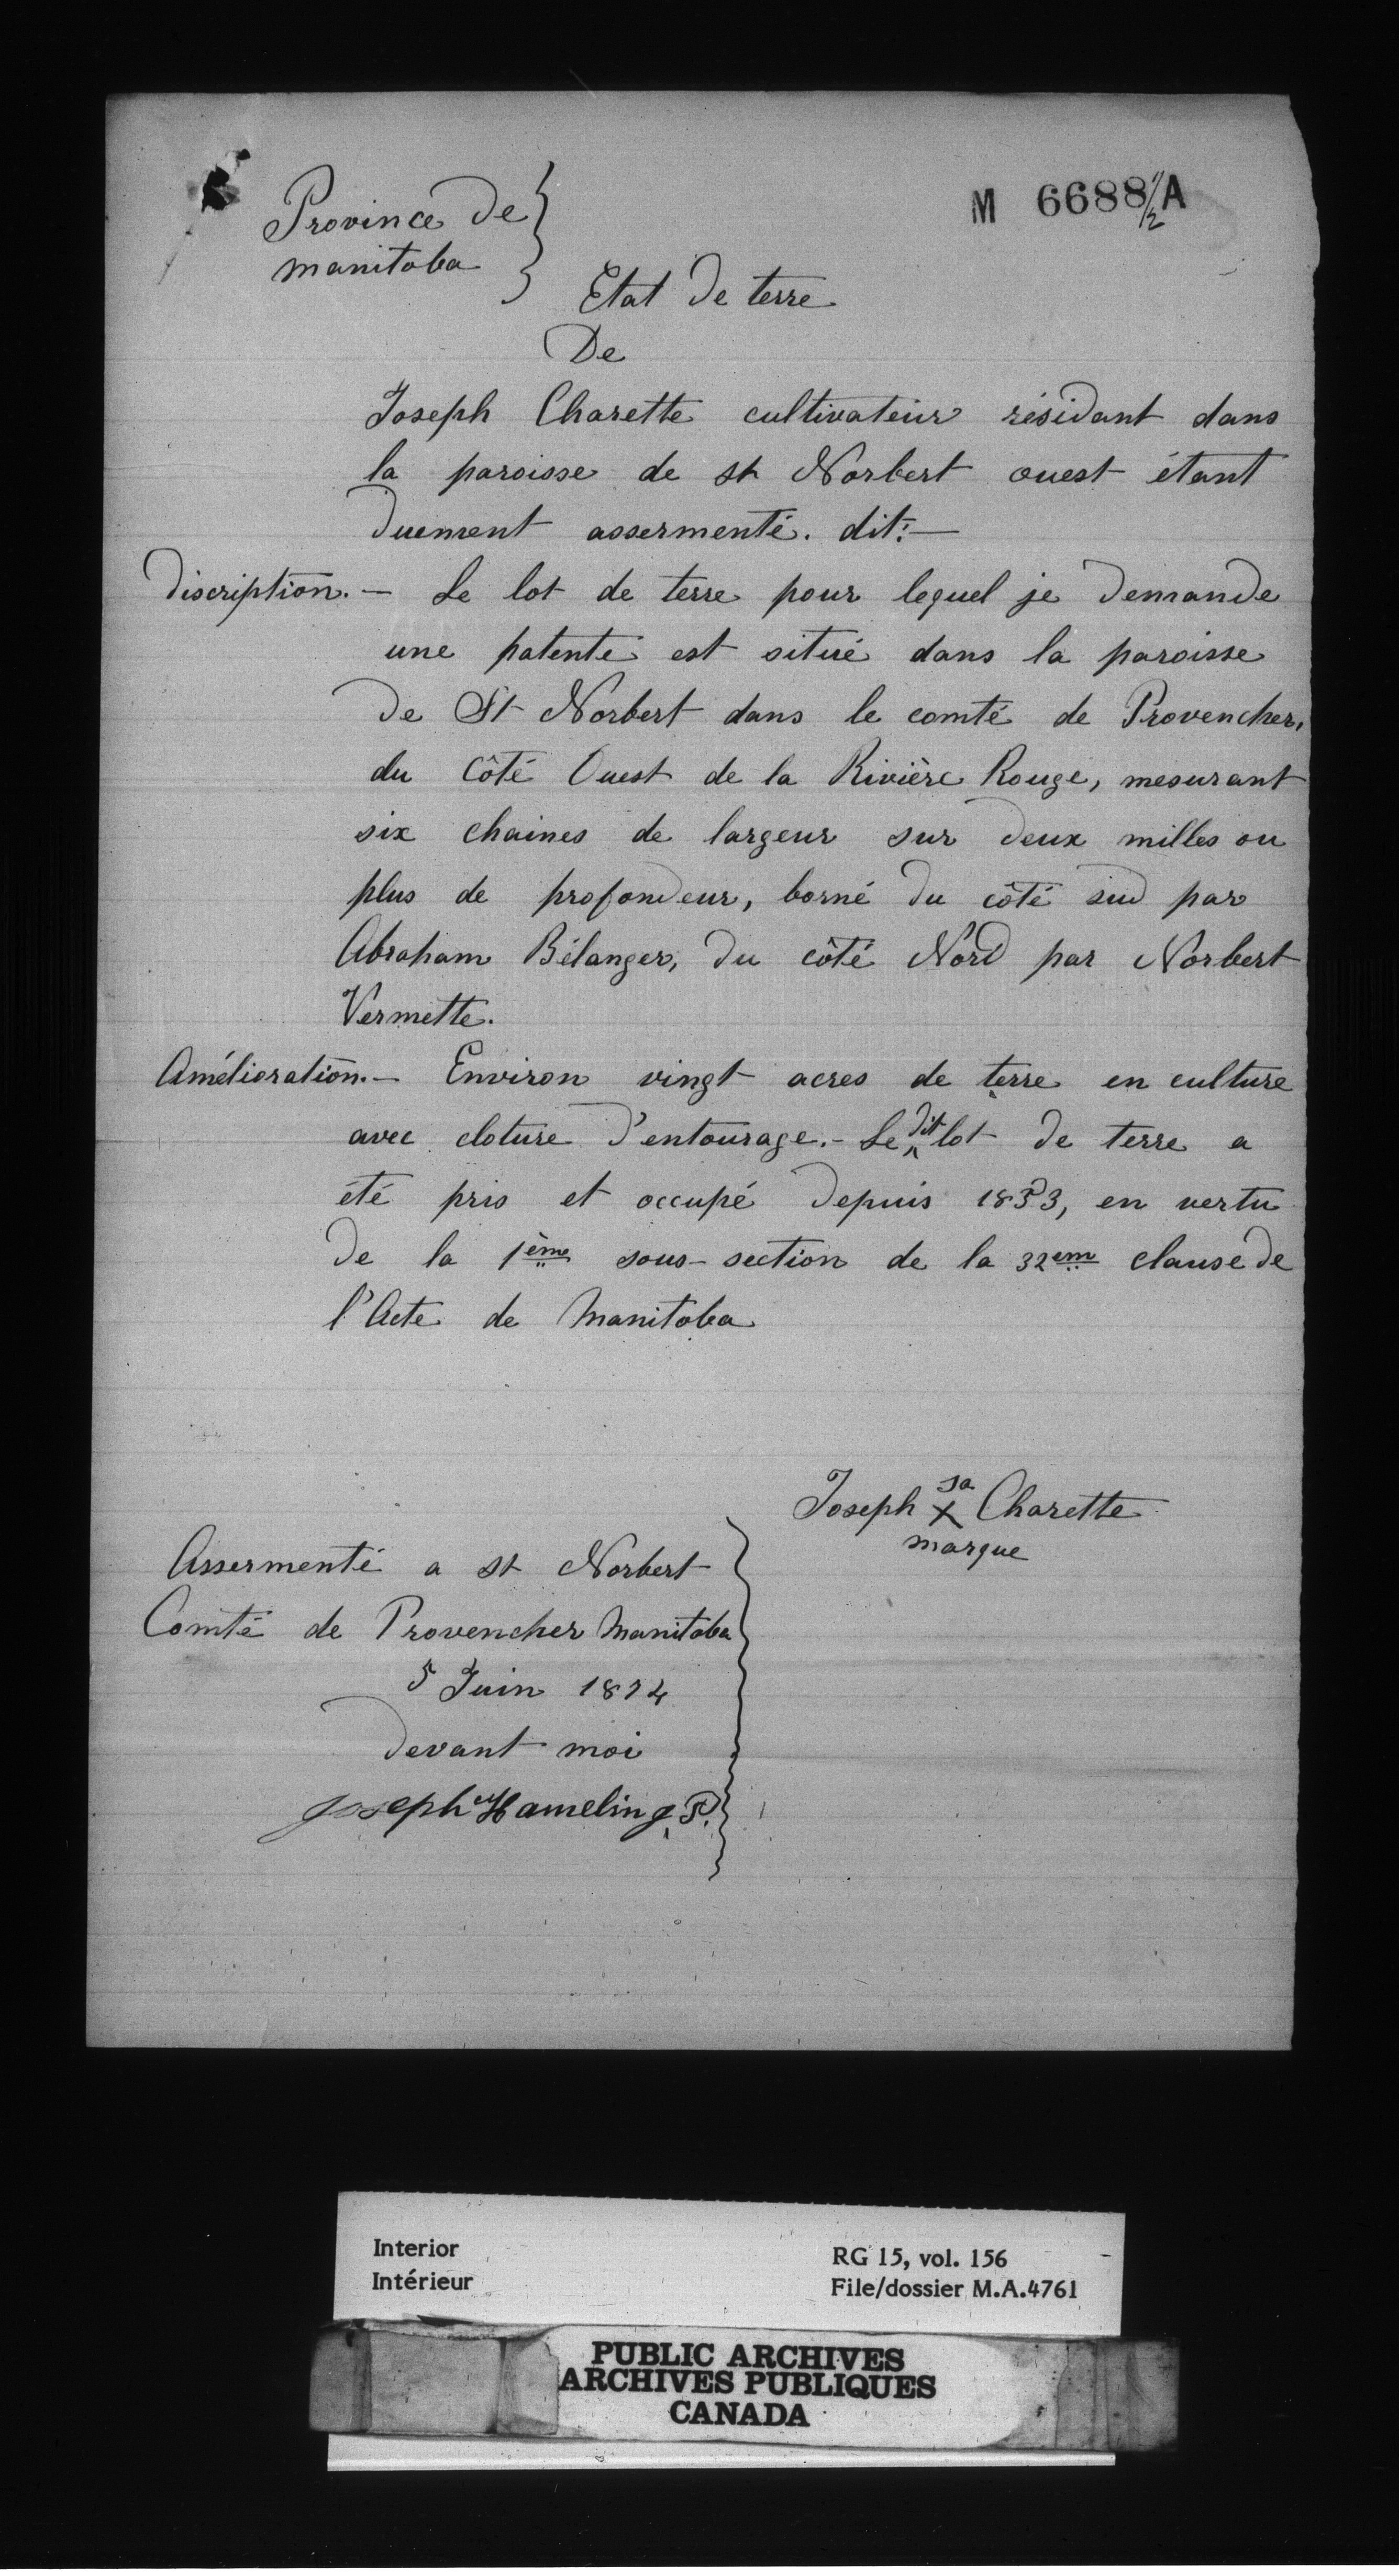 Province de
manitoba
M 6688 1/2 A
Etat de terre
De
Joseph Charette cultivateur résidant dans
la paroisse de st Norbert ouest étant
duement assermenté. dit:—
Discription. — Le lot de terre pour lequel je demande
une patente est situé dans la paroisse
de St Norbert dans le comté de Provencher,
du côté Ouest de la Rivière Rouge, mesurant
six chaines de largeur sur deux milles ou
plus de profondeur, borné du côté sud par
Abraham Bélanger, du côté Nord par Norbert
Vermette.
Amélioration. — Environ vingt acres de terre en culture
avec cloture d'entourage. - Le dit lot de terre a
été pris et occupé depuis 1853, en vertu
de la 1ème sous-section de la 32em clause de
l'Acte de Manitoba
Joseph sa X Charette
marque
Assermenté a st Norbert
Comté de Provencher Manitoba
5 Juin 1874
devant moi
Joseph Hamelin J.P.
Interior
Intérieur
RG 15, vol. 156
File/dossier M.A.4761
PUBLIC ARCHIVES
ARCHIVES PUBLIQUES
CANADA